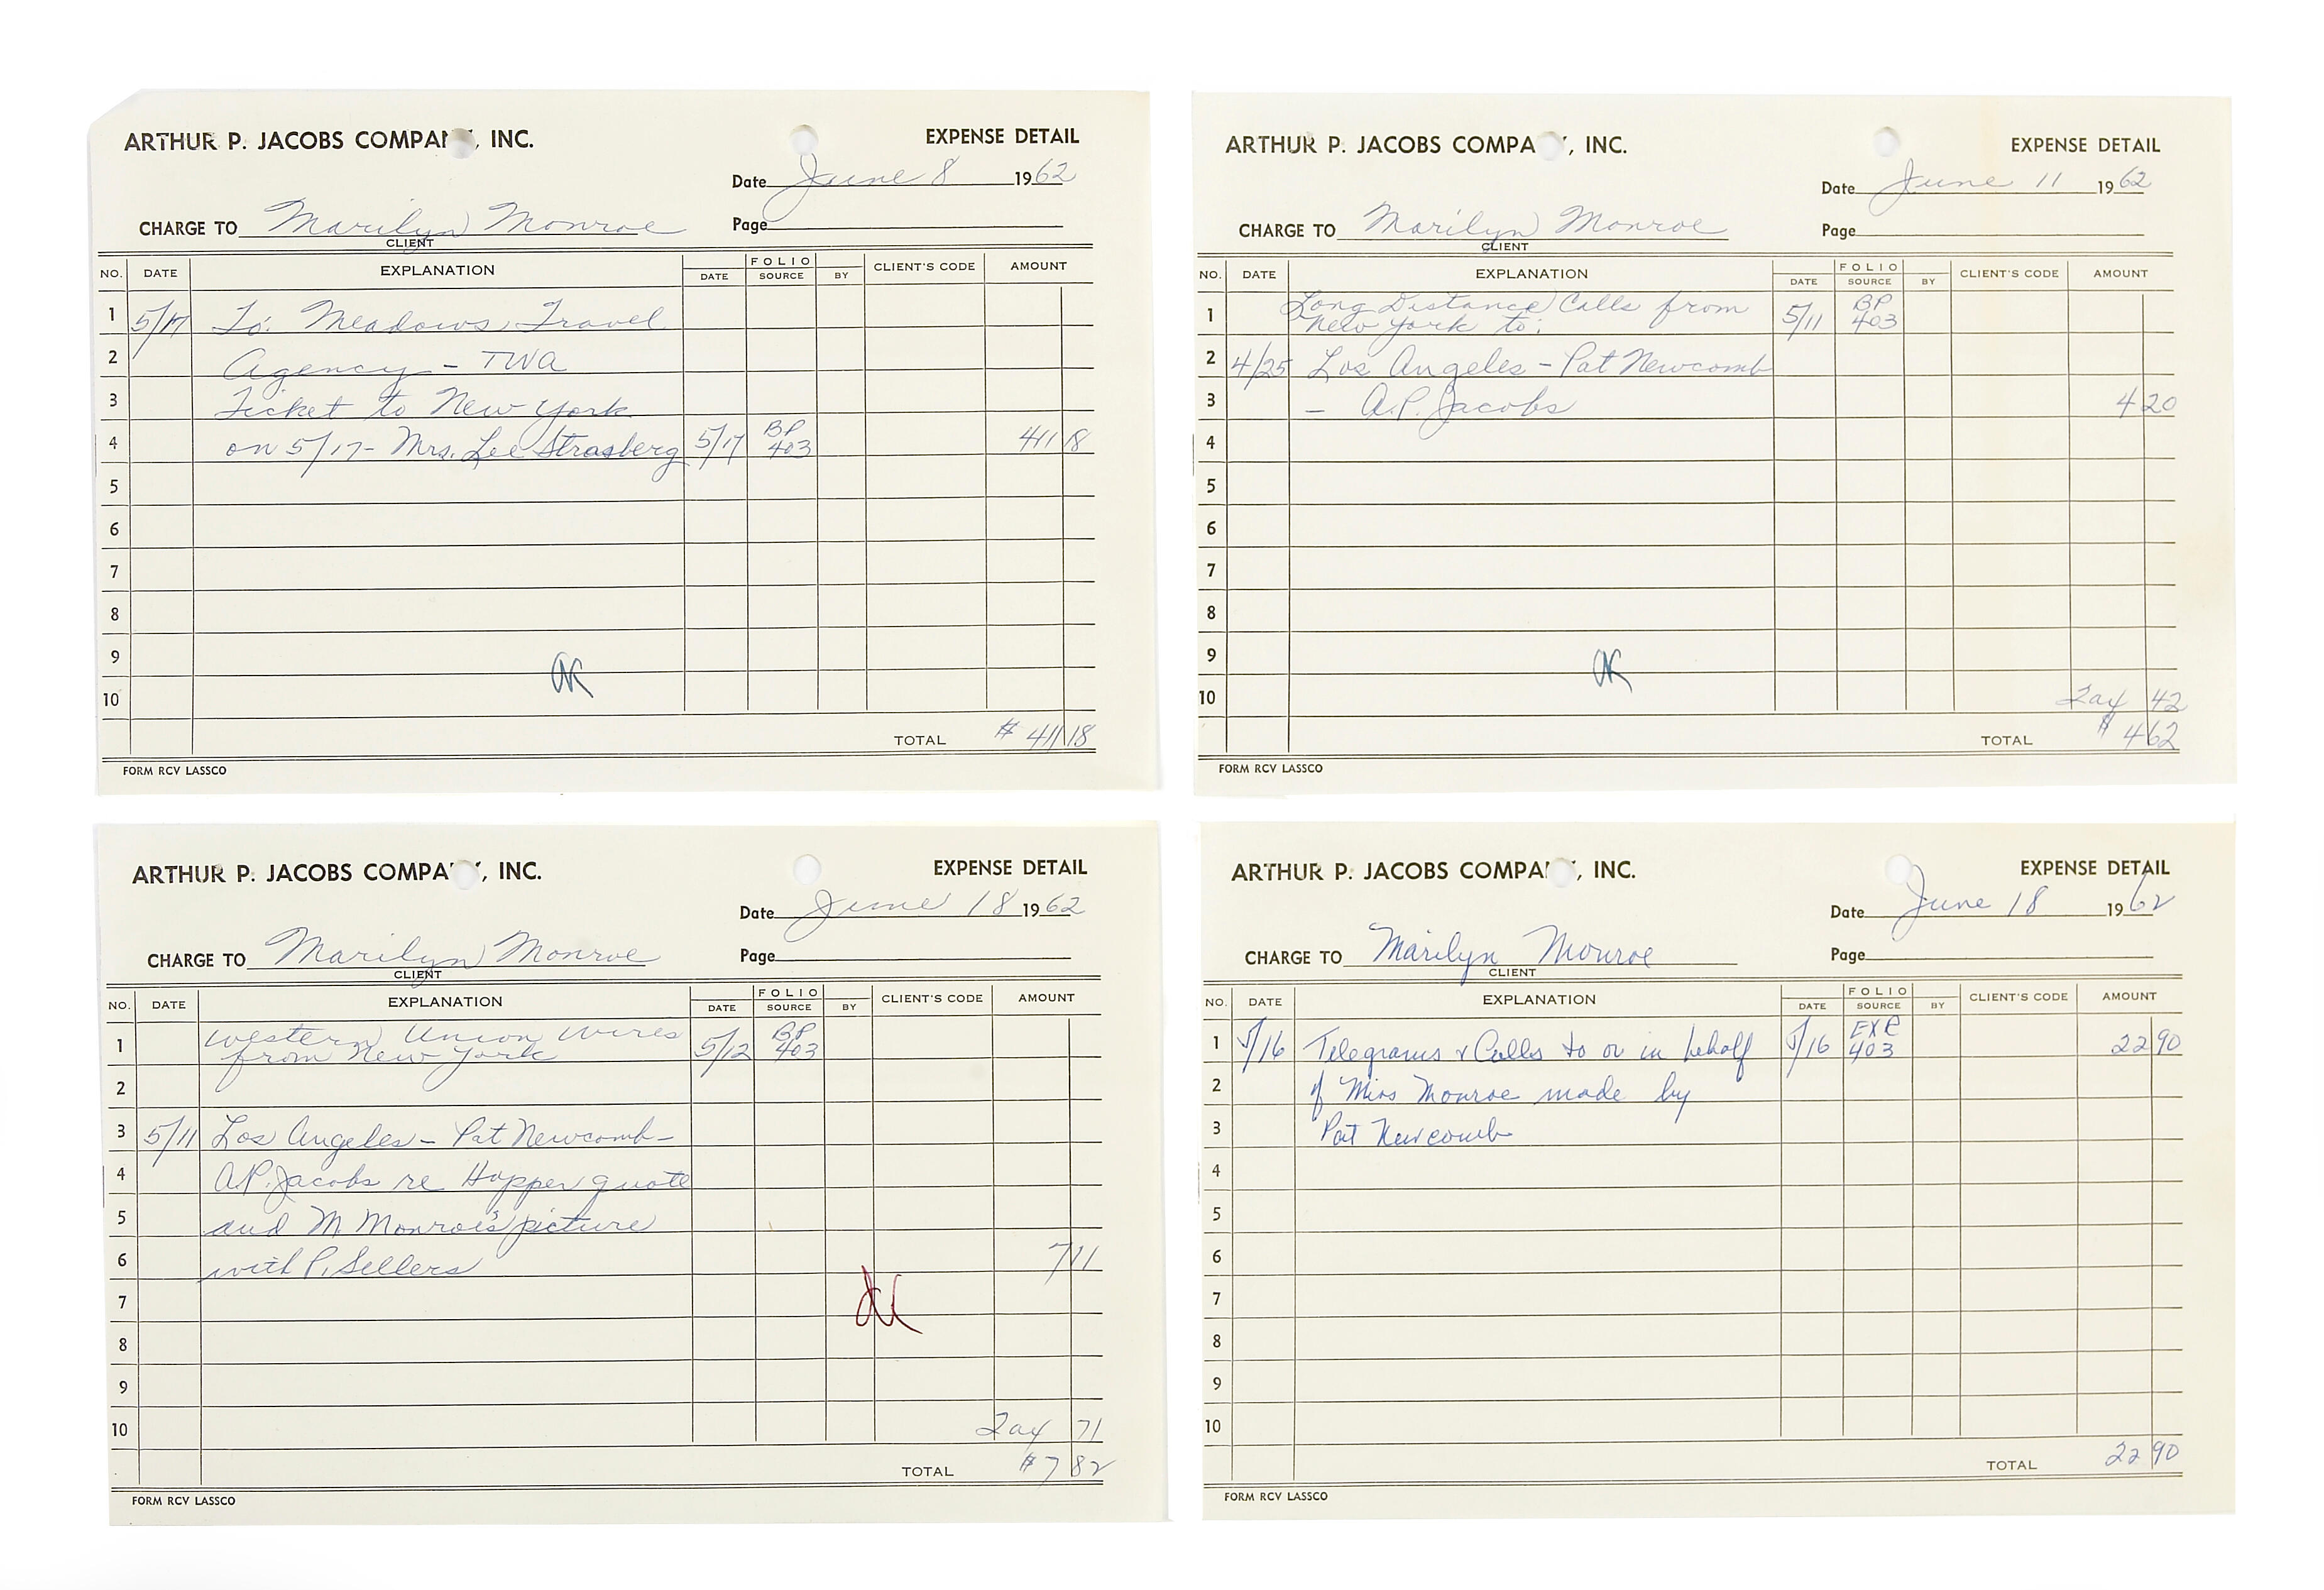 ARTHUR P. JACOBS COMPANY, INC.
EXPENSE DETAIL
Date June 8 1962
CHARGE TO Marilyn Monroe
Page
CLIENT
NO. DATE EXPLANATION FOLIO DATE SOURCE BY CLIENT'S CODE AMOUNT
1 5/17 To: Meadows Travel
2 Agency - TWA
3 Ticket to New York
4 on 5/17 - Mrs. Lee Strasberg 5/17 BP 403 411 18
5
6
7
8
9
OK
10
TOTAL $ 411 18
FORM RCV LASSCO
ARTHUR P. JACOBS COMPANY, INC.
EXPENSE DETAIL
Date June 11 1962
CHARGE TO Marilyn Monroe
Page
CLIENT
NO. DATE EXPLANATION FOLIO DATE SOURCE BY CLIENT'S CODE AMOUNT
1 Long Distance Calls from
New York to: 5/11 BP 403
2 4/25 Los Angeles - Pat Newcomb
3 - A.P. Jacobs 4 20
4
5
6
7
8
9
OK
10 Tax 42
TOTAL $ 4 62
FORM RCV LASSCO
ARTHUR P. JACOBS COMPANY, INC.
EXPENSE DETAIL
Date June 18 1962
CHARGE TO Marilyn Monroe
Page
CLIENT
NO. DATE EXPLANATION FOLIO DATE SOURCE BY CLIENT'S CODE AMOUNT
1 Western Union Wires
from New York 5/12 BP 403
2
3 5/11 Los Angeles - Pat Newcomb -
4 A.P. Jacobs re Hopper quote
5 and M. Monroe's picture
6 with P. Sellers 7 11
7
OK
8
9
10 Tax 71
TOTAL $ 7 82
FORM RCV LASSCO
ARTHUR P. JACOBS COMPANY, INC.
EXPENSE DETAIL
Date June 18 1962
CHARGE TO Marilyn Monroe
Page
CLIENT
NO. DATE EXPLANATION FOLIO DATE SOURCE BY CLIENT'S CODE AMOUNT
1 5/16 Telegrams & Calls to or in behalf 5/16 EXP 403 22 90
2 of Miss Monroe made by
3 Pat Newcomb
4
5
6
7
8
9
10
TOTAL 22 90
FORM RCV LASSCO